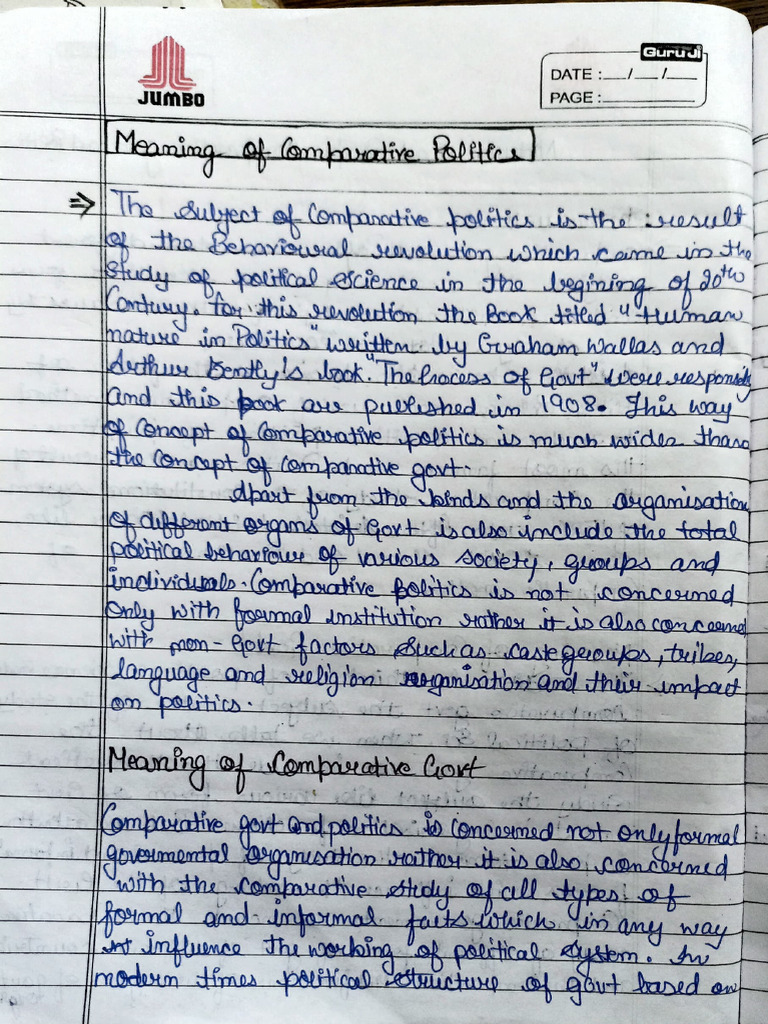 JUMBO
Guru Ji
DATE : __/__/__
PAGE : ______
Meaning of Comparative Politics
⇒ The subject of Comparative politics is the result
of the Behavioural revolution which came in the
study of political science in the begining of 20th
Century. for this revolution the Book titled "Human
nature in Politics" written by Graham Wallas and
Arthur Bently's book "The Process of Govt" were
and this book are published in 1908. This way
of concept of Comparative politics is much wider than
the concept of comparative govt.
Apart from the kinds and the organisation
of different organs of Govt is also include the total
political behaviour of various society, groups and
individuals. Comparative politics is not concerned
only with formal institution rather it is also concerned
with non-Govt factors such as caste groups, tribes,
language and religion organisation and their impact
on politics.
Meaning of Comparative Govt
Comparative govt and politics is concerned not only formal
govermental organisation rather it is also concerned
with the comparative study of all types of
formal and informal facts which in any way
influence the working of political system. In
modern times political structure of govt based on